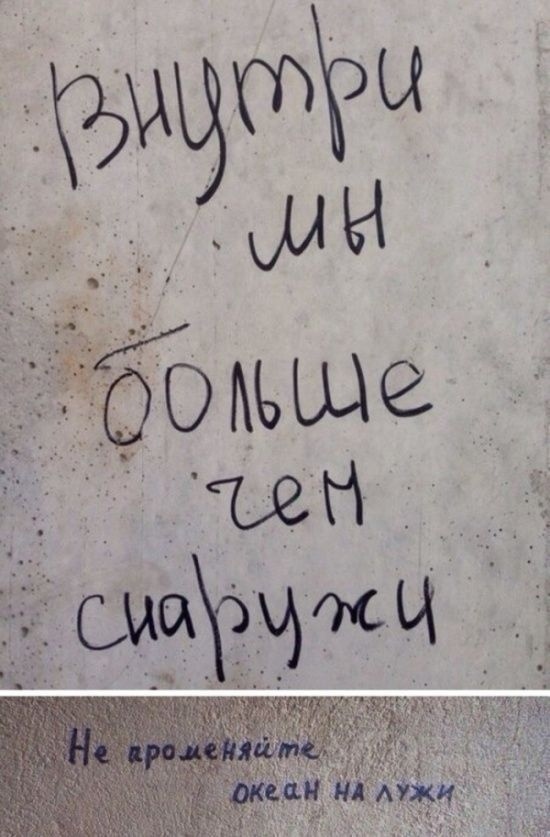 Внутри
мы
больше
чем
снаружи
Не променяйте
океан на лужи